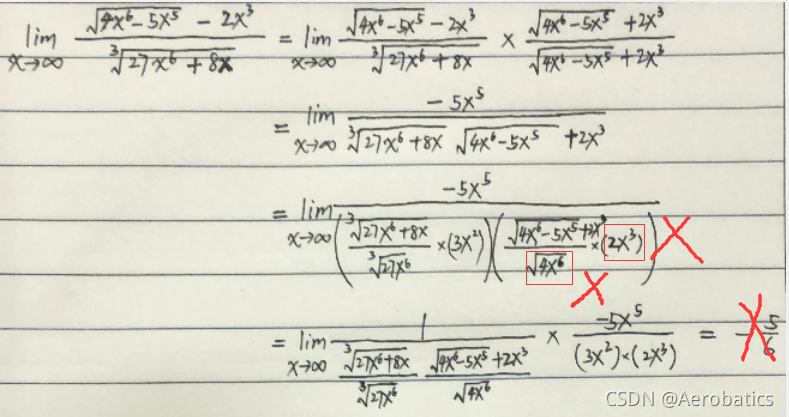 lim x→∞ (√(4x⁶-5x⁵) - 2x³)/(³√(27x⁶+8x)) = lim x→∞ (√(4x⁶-5x⁵) - 2x³)/(³√(27x⁶+8x)) × (√(4x⁶-5x⁵) + 2x³)/(√(4x⁶-5x⁵) + 2x³)
= lim x→∞ (-5x⁵)/(³√(27x⁶+8x) √(4x⁶-5x⁵) + 2x³)
= lim x→∞ (-5x⁵)/((³√(27x⁶+8x)/³√(27x⁶) × (3x²))((√(4x⁶-5x⁵)+2x³)/√(4x⁶) × (2x³)))
= lim x→∞ 1/((³√(27x⁶+8x)/³√(27x⁶)) (√(4x⁶-5x⁵)+2x³)/√(4x⁶)) × (-5x⁵)/((3x²)×(2x³)) = -5/6
CSDN @Aerobatics